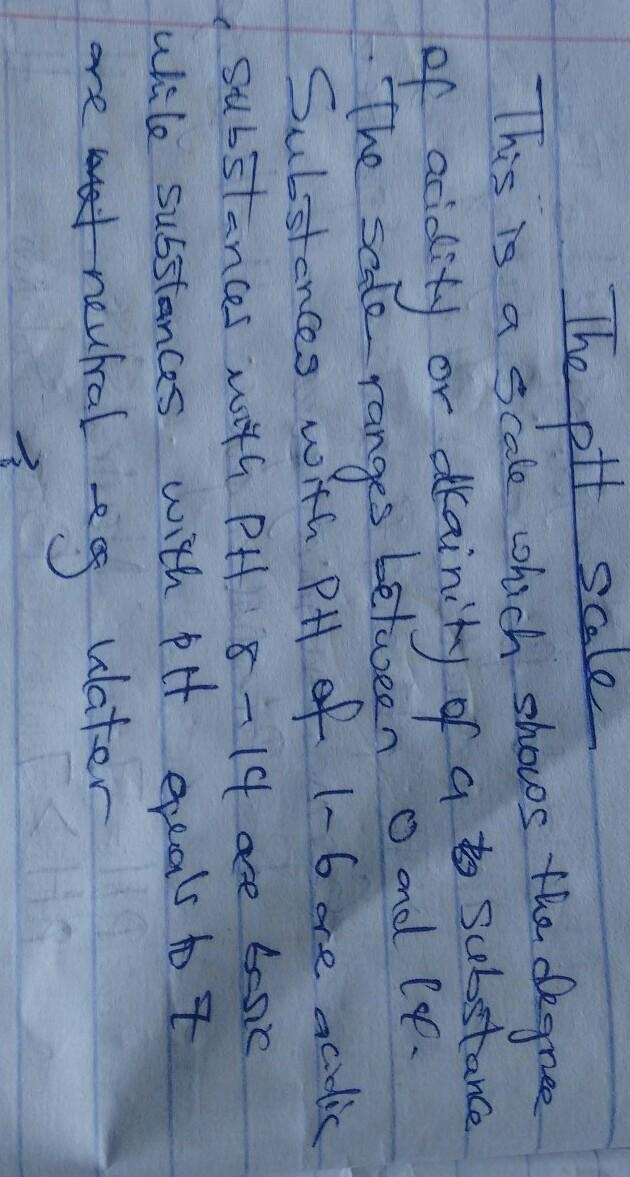 The pH scale
This is a scale which shows the degree
of acidity or alkainity of a to substance
. The scale ranges between 0 and 14.
Substances with PH of 1-6 are acidic
, substances with PH 8-14 are basic
while substances with pH equals to 7
are neutral eg water